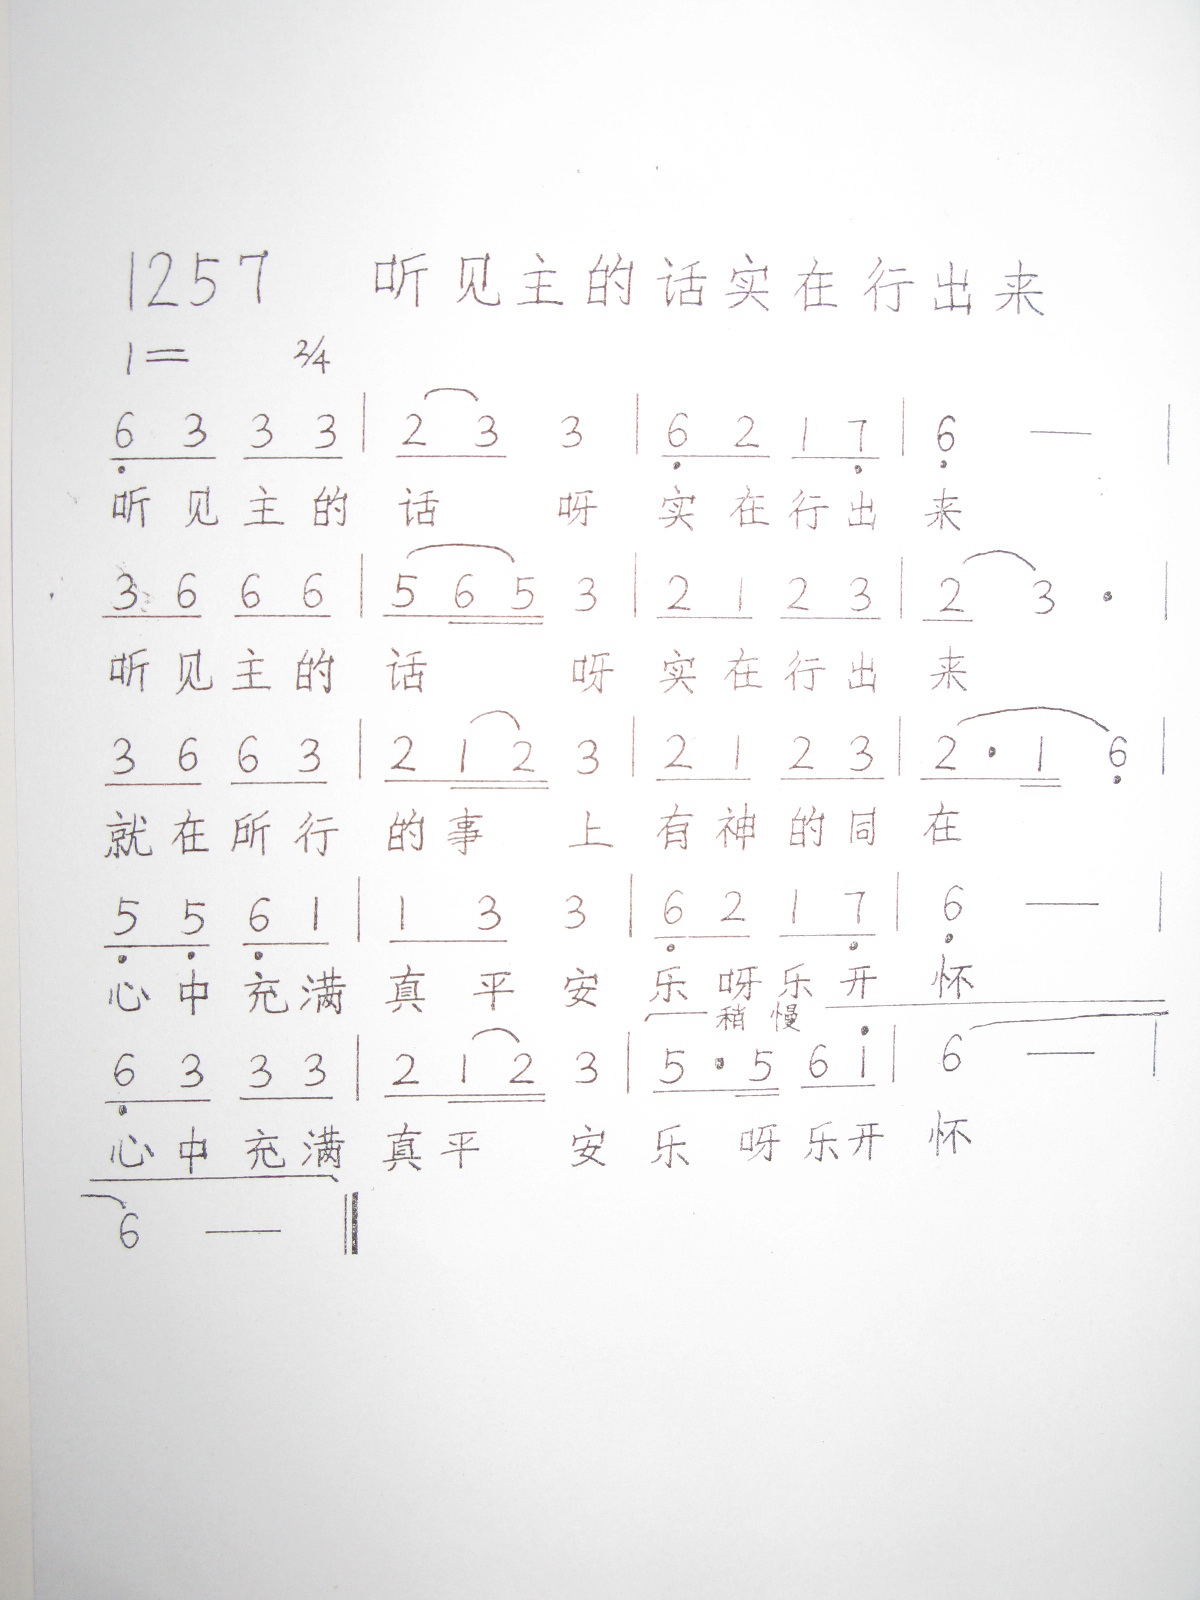 1257 听见主的话实在行出来
1= 2/4
6̣ 3 3 3 | 2 3 3 | 6̣ 2 1 7̣ | 6̣ — |
听见主的 话 呀 实在行出 来
3 6 6 6 | 5 6 5 3 | 2 1 2 3 | 2 3 · |
听见主的 话 呀 实在行出 来
3 6 6 3 | 2 1 2 3 | 2 1 2 3 | 2 · 1 6̣ |
就在所行 的事 上 有神的同 在
5̣ 5̣ 6̣ 1 | 1 3 3 | 6̣ 2 1 7̣ | 6̣ — |
心中充满 真 平 安 乐呀乐开 怀
稍 慢
6̣ 3 3 3 | 2 1 2 3 | 5 · 5 6 1̇ | 6 — |
心中充满 真平 安 乐 呀乐开 怀
6 — ‖